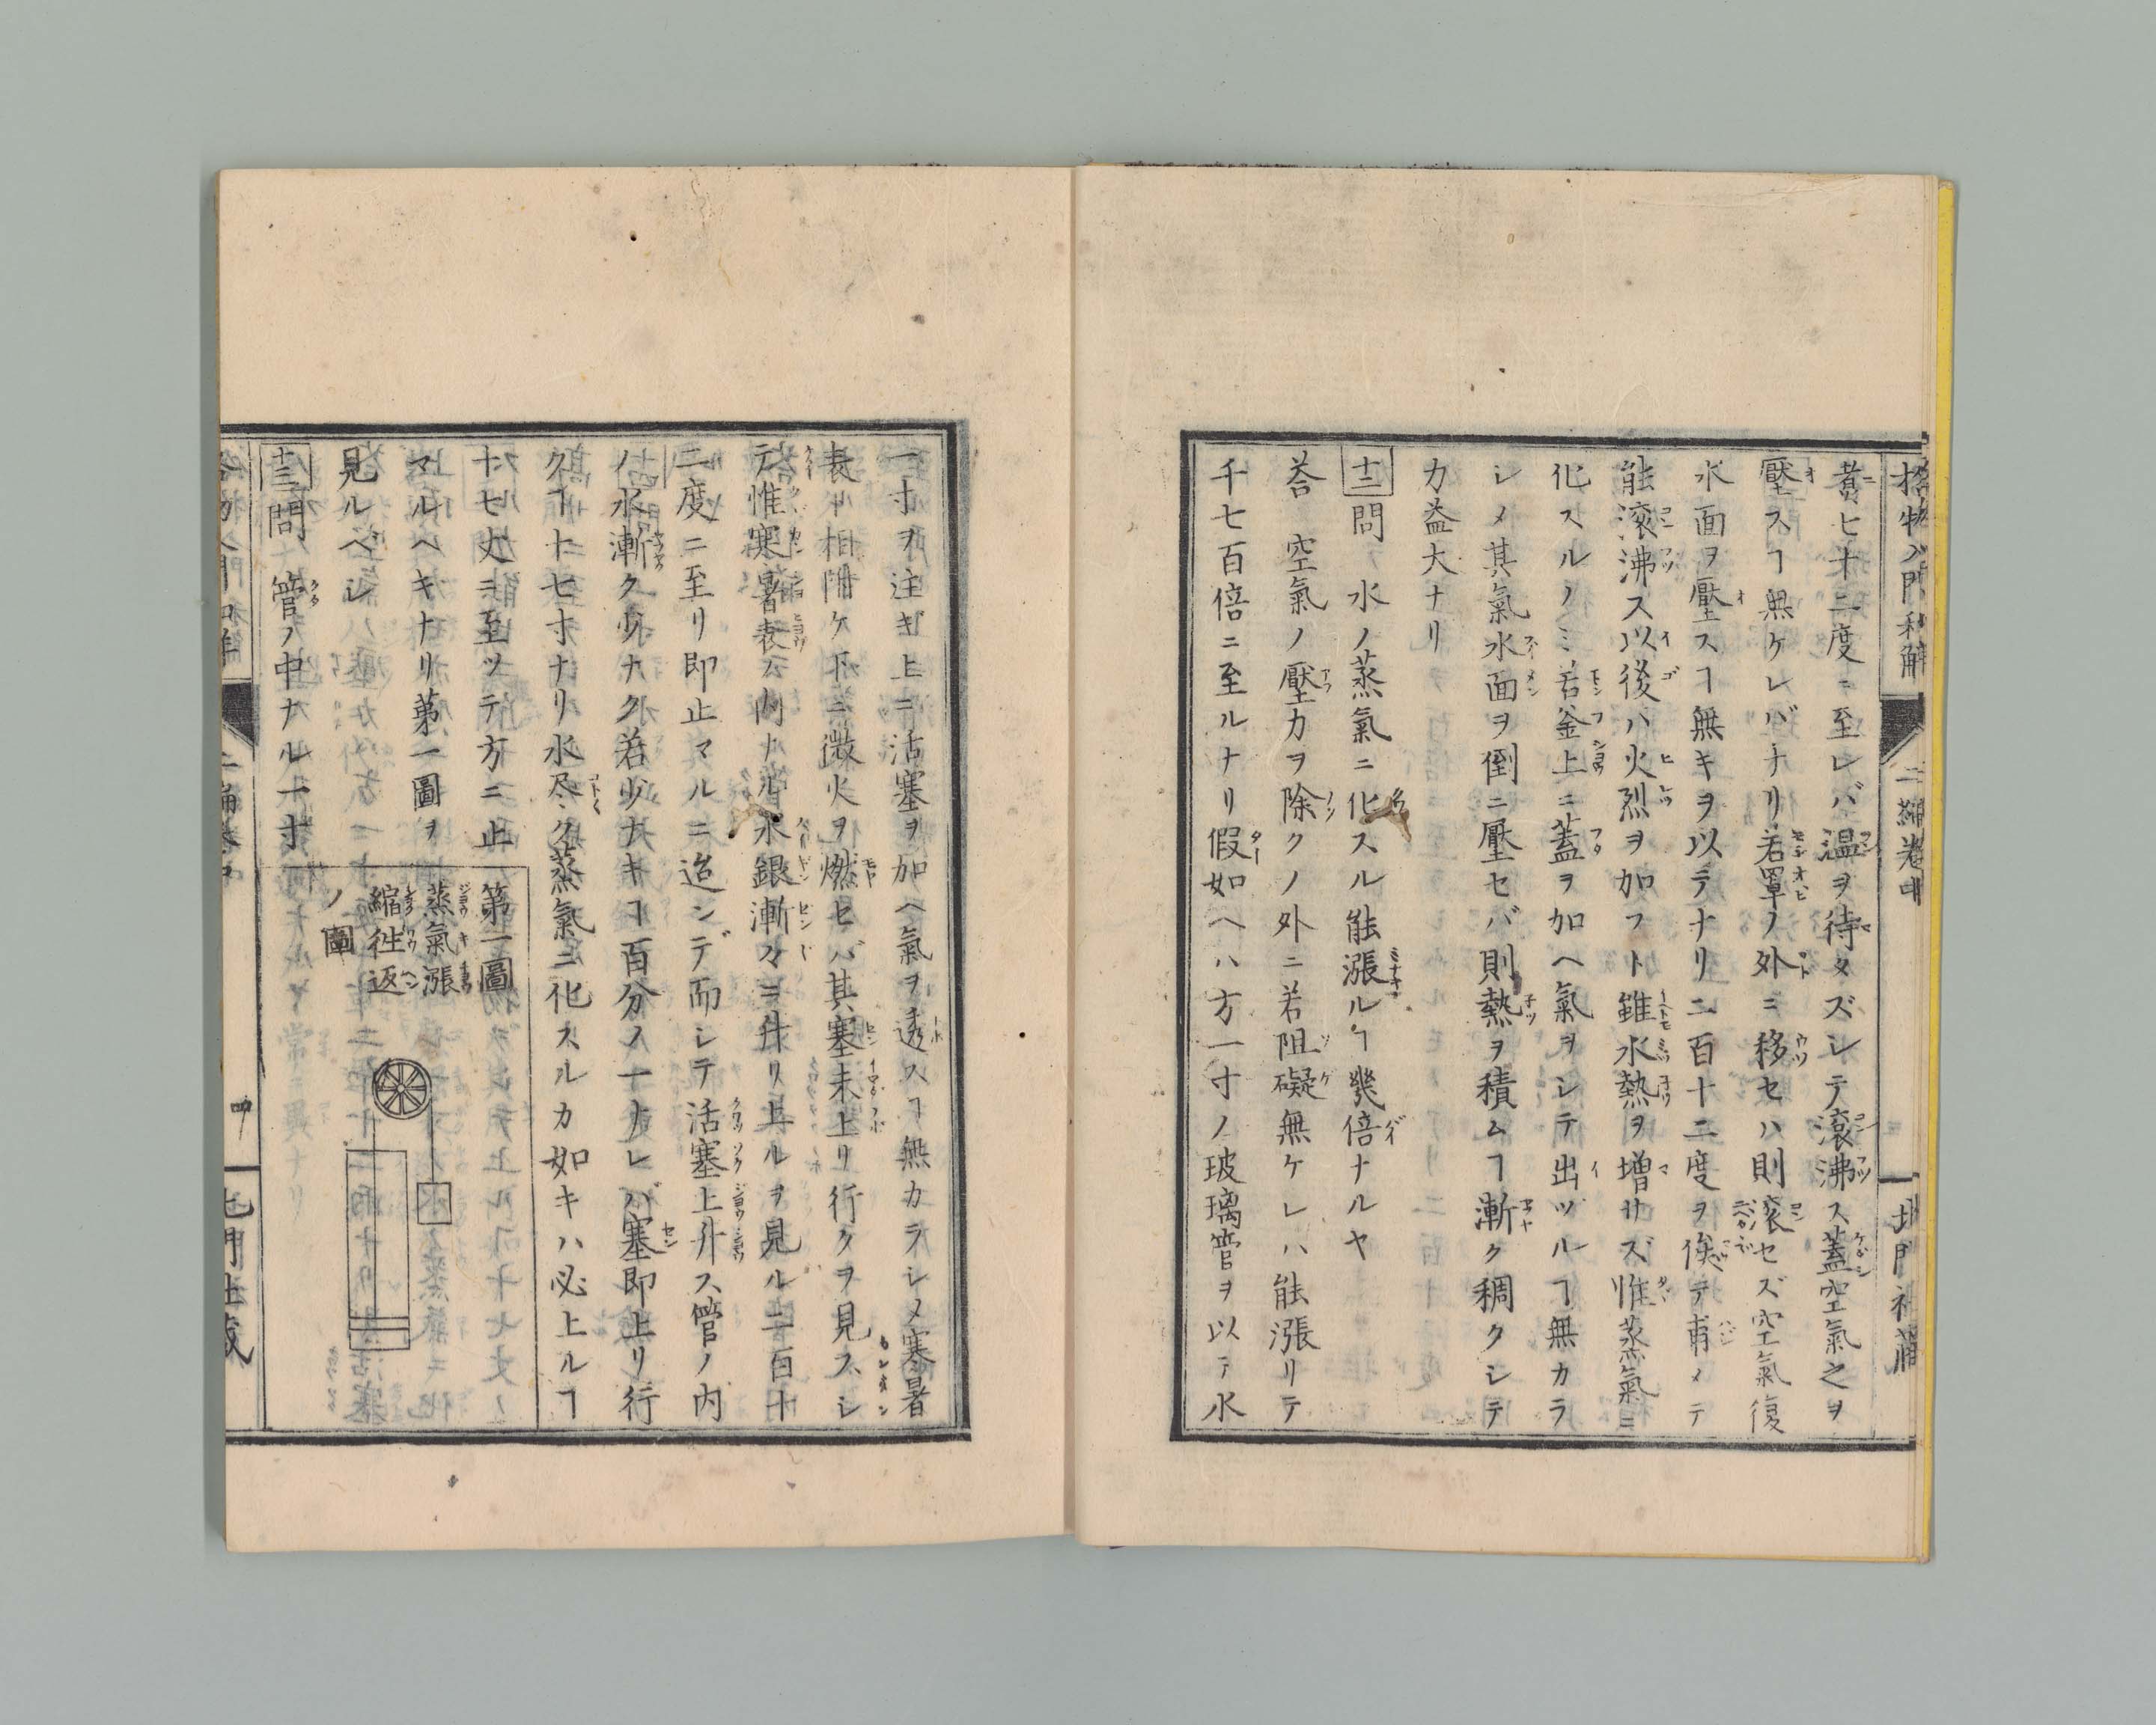 格物入門和解 二編卷中 北門社藏
煑ヒ十二度ニ至レバ温ヲ待タズシテ滾沸ス蓋空氣之ヲ
壓スヿ無ケレバナリ若罩ノ外ニ移セハ則滾セズ空氣復
水面ヲ壓スヿ無キヲ以テナリ二百十二度ヲ俟テ甫メテ
能滾沸ス以後ハ火烈ヲ加フト雖水熱ヲ増サズ惟蒸氣ニ
化スルノミ若釜上ニ蓋ヲ加ヘ氣ヲシテ出ヅルヿ無カラ
シメ其氣水面ヲ倒ニ壓セバ則熱ヲ積ムヿ漸ク稠クシテ
力益大ナリ
十二問 水ノ蒸氣ニ化スル能漲ルヿ幾倍ナルヤ
荅 空氣ノ壓力ヲ除クノ外ニ若阻礙無ケレハ能漲リテ
千七百倍ニ至ルナリ假如ヘハ方一寸ノ玻璃管ヲ以テ水
一寸ヲ注ギ上ニ活塞ヲ加ヘ氣ヲ透スヿ無カラシメ寒暑
表
ケ下ニ微火ヲ燃セバ其塞未上リ行クヲ見スシ
テ惟寒暑表
内ナル水銀漸々ニ升リ上ルヲ見ル二百十
二度ニ至リ即止マルニ迨ンデ而シテ活塞上升ス管ノ内
ノ水漸ク少ナク若少ナキヿ百分ノ一ナレバ塞即上リ行
クヿ十七寸ナリ水尽ク蒸氣ニ化スルカ如キハ必上ルヿ
十七丈ニ至ツテ方ニ止
マルヘキナリ第一圖ヲ
見ルヘシ
第一圖
蒸氣漲
縮徃返
ノ圖
十三問 管ノ中ナル一寸
四
北門社藏